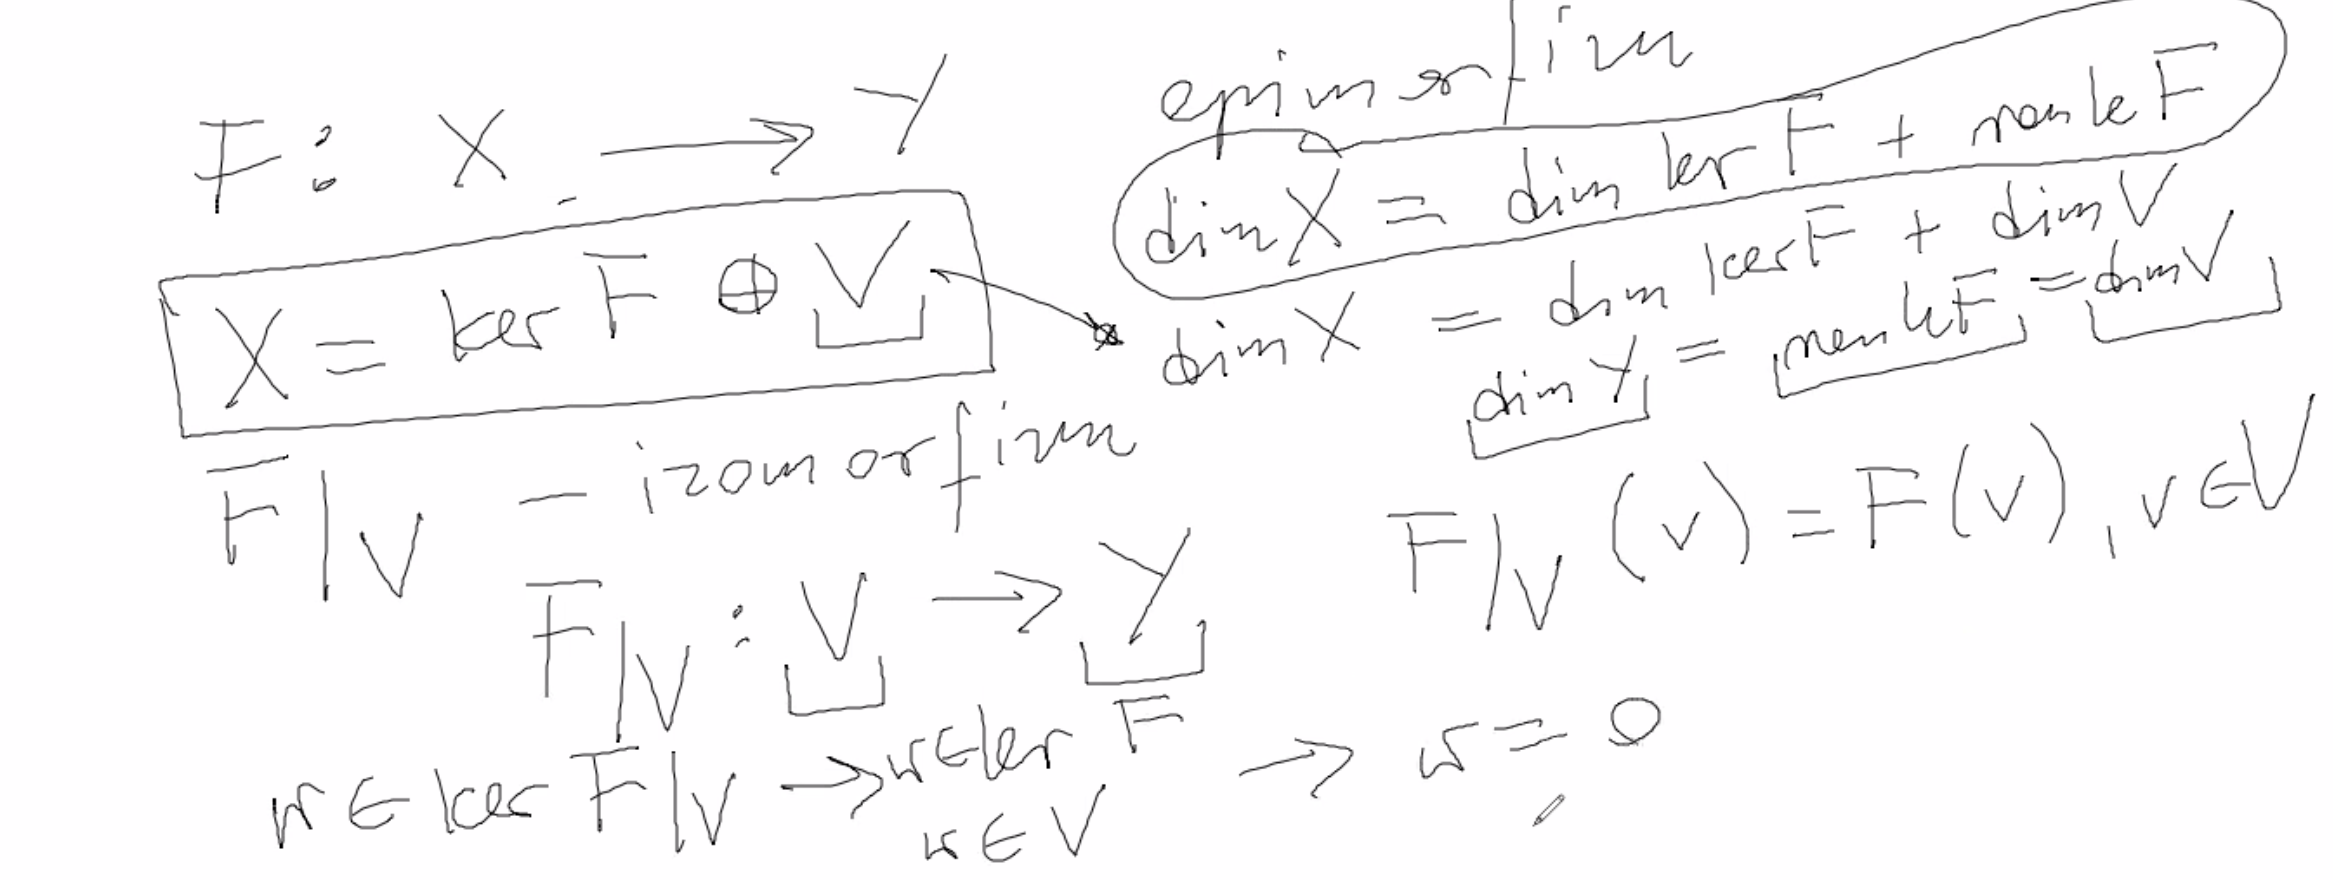 F: X → Y epimorfizm
dim X = dim ker F + rank F
X = ker F ⊕ V
dim X = dim ker F + dim V
dim Y = rank F = dim V
F|V – izomorfizm
F|V (v) = F(v), v ∈ V
F|V : V → Y
w ∈ ker F|V → w ∈ ker F → w = 0
w ∈ V